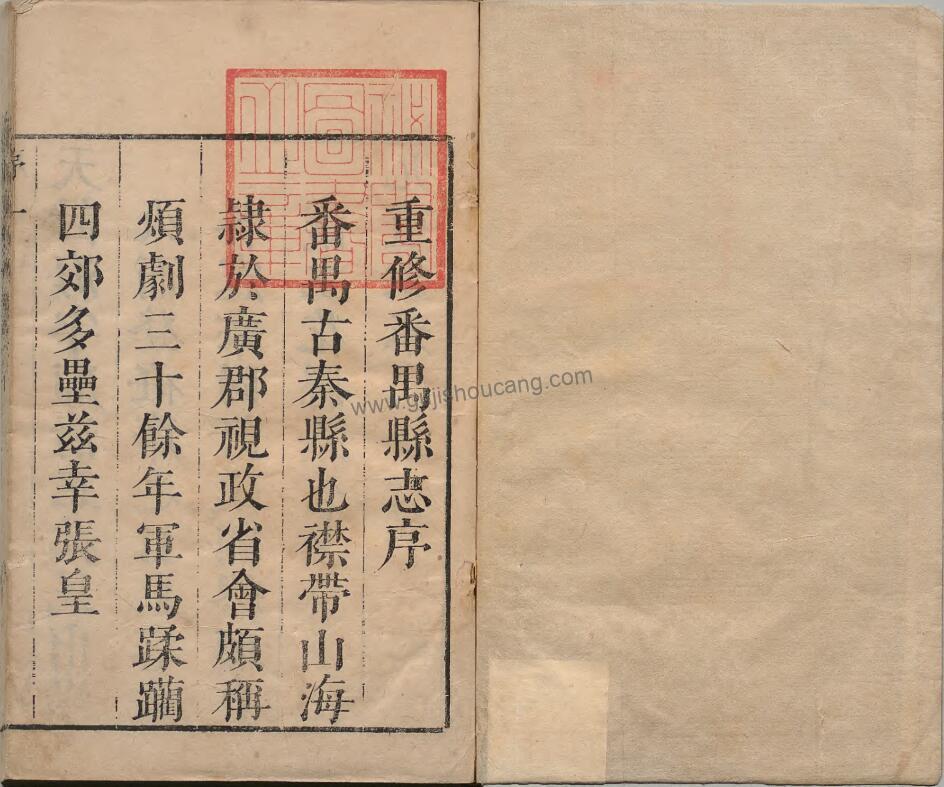 重修番禺縣志序
番禺古秦縣也襟帶山海
隷於廣郡視政省會頗稱
煩劇三十餘年軍馬蹂躪
四郊多壘兹幸張皇
序
一
www.gujishoucang.com